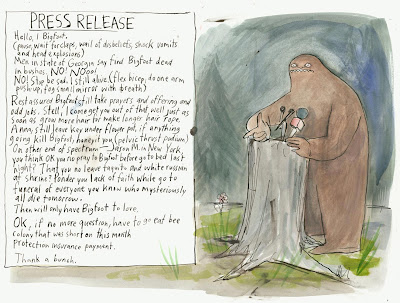 PRESS RELEASE
Hello, I Bigfoot.
(pause, wait for claps, wail of disbeliefs, shock vomits
and head explosions)
Men in state of Georgia say find Bigfoot dead
in bushes. NO! NOooo!
NO! Stip be sad. I still alive (flex bicep, do one arm
pushup, fog small mirror with breath)
Rest assured Bigfoot still take prayers and offering and
odd jobs. Stell, I come get you out of that well just as
soon as grow more hair for make longer hair rope.
Anna, still leave key under flower pot, if anything
going kill Bigfoot, honey it you (pelvic thrust podium)
On other end of spectrum — Jason M. in New York,
you think OK you no pray to Bigfoot before go to bed last
night? That you no leave taquito and white russian
at shrine? Ponder you lack of faith while go to
funeral of everyone you know who mysteriously
all die tomorrow.
Then will only have Bigfoot to love.
OK, if no more question, have to go eat bee
colony that was short on this month
protection insurance payment.
Thank a bunch.